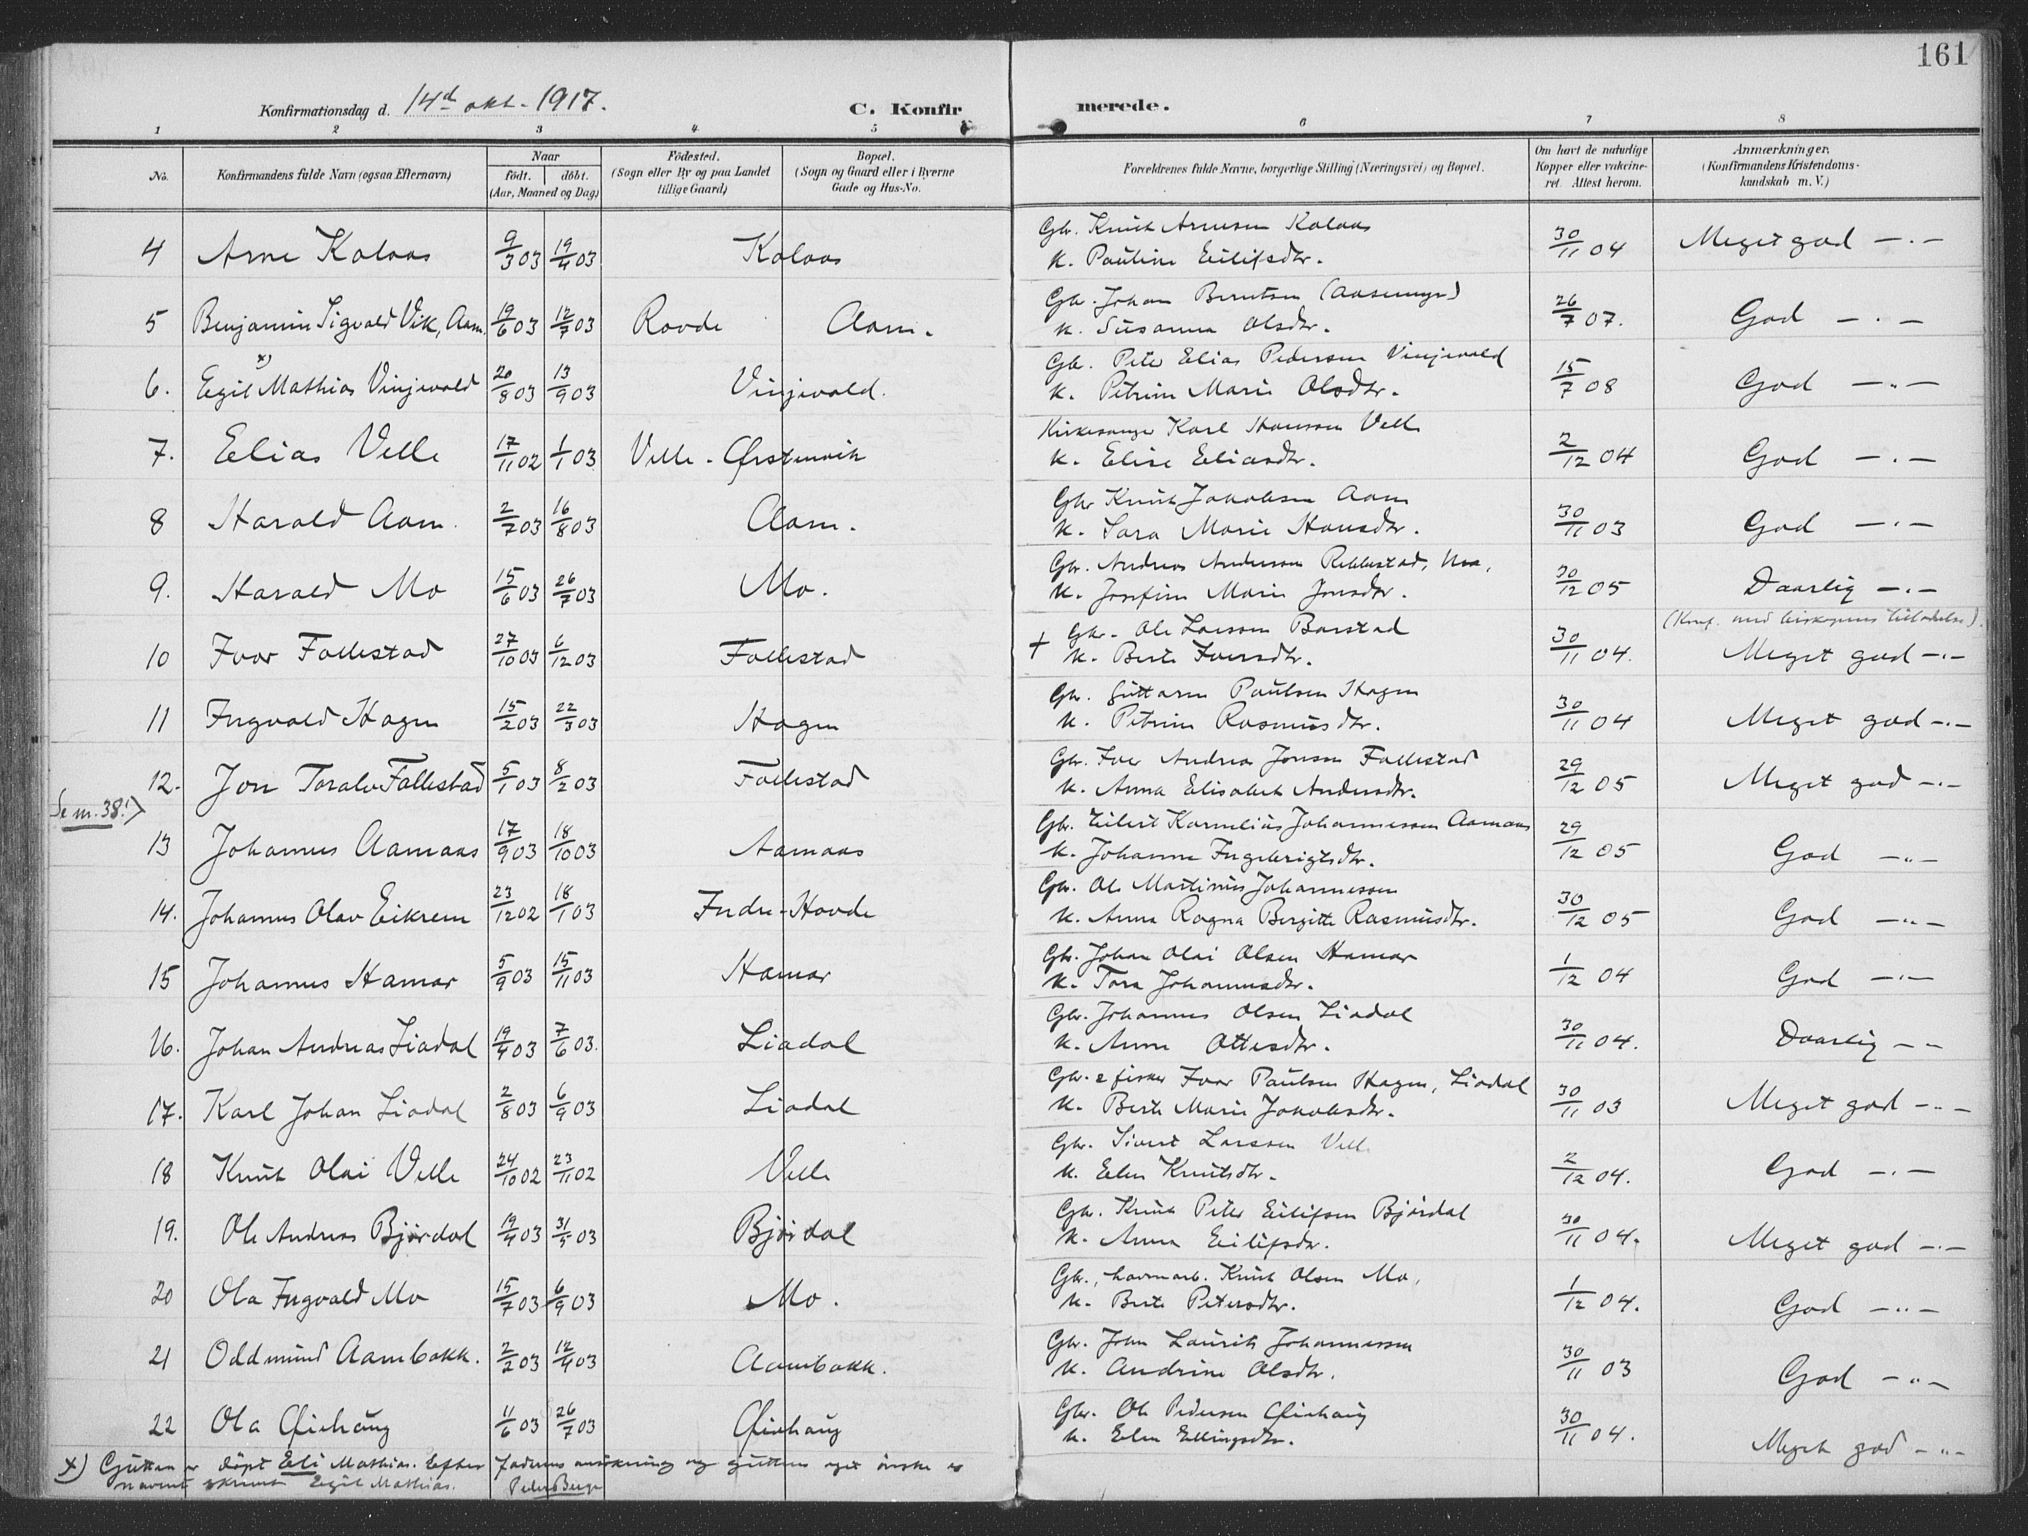 161
Konfirmationsdag d. 14d okt. 1917. C. Konfirmerede.
1 2 3 4 5 6 7 8
No. Konfirmandens fulde Navn (ogsaa Efternavn) Naar født. døbt. (Aar, Maaned og Dag) Fødested. (Sogn eller By og paa Landet tillige Gaard) Bopæl. (Sogn og Gaard eller i Byerne Gade og Hus-No. Forældrenes fulde Navne, borgerlige Stilling (Næringsvei) og Bopæl. Om havt de naturlige Kopper eller vaccineret. Attest herom. Anmærkninger. (Konfirmandens Kristendomskundskab m. V.)
4 Arne Kolaas 9/3 03 19/4 03 Kolaas Gbr. Knut Arnesen Kolaas 30/11 04 Meget god — . —
K. Pauline Eilifsdtr.
5 Benjamin Sigvald Vik, Aam. 19/6 03 12/7 03 Rovde Aam. Gbr. Johan Berntsen (Aasemyr) 26/7 07. God — . —
K. Susanna Olsdtr.
x)
6. Egil Mathias Vinjevold 20/8 03 13/9 03 Vinjevold. Gbr. Peter Elias Pedersen Vinjevold 15/7 08 God — „ —
K. Petrine Marie Olsdtr.
7. Elias Velle 17/11 02 1/1 03 Velle - Ørstenvik Kirkesanger Karl Hansen Velle 2/12 04 God — . —
K. Elise Eliasdtr.
8 Harald Aam. 2/7 03 16/8 03 Aam. Gbr Knut Jakobsen Aam 30/11 03 God — . —
K. Sara Marie Hansdtr.
9. Harald Mo 15/6 03 26/7 03 Mo. Gbr. Andreas Andersen Rekkestad, Mo, 30/12 05 Daarlig — . —
K. Josefine Marie Jonsdtr.
(Konf. med biskopens tilladelse).
10 Ivar Follestad 27/10 03 6/12 03 Follestad + Gbr. Ole Larsen Barstad 30/11 04. Meget god — . —
K. Berte Iversdtr.
11 Ingvald Hagen 15/2 03 22/3 03 Hagen Gbr. Guttorm Paulsen Hagen 30/11 04 Meget god — . —
K. Petrine Rasmusdtr.
12. Jon Toralv Follestad 5/1 03 8/2 03 Follestad Gbr. Iver Andreas Jonsen Follestad 29/12 05 Meget god — . —
K. Anna Elisabet Andersdtr.
Se nr. 38!)
13 Johannes Aamaas 17/9 03 18/10 03 Aamaas Gbr. Eilert Kornelius Johannessen Aamaas 29/12 05 God — „ —
K. Johanne Ingebrigtsdtr.
14. Johannes Olav Eikrem 23/12 02 18/1 03 Indre-Hovde Gbr. Ole Martinus Johannessen 30/12 05 God — „ —
K. Anna Ragna Bergitte Rasmusdtr.
15 Johannes Hamar 5/9 03 15/11 03 Hamar Gbr. Johan Olai Olsen Hamar 1/12 04 God — . —
K. Tora Johannesdtr.
16. Johan Andreas Liadal 19/4 03 7/6 03. Liadal Gbr. Johannes Olsen Liadal 30/11 04. Daarlig — —
K. Anne Ottesdtr.
17. Karl Johan Liadal 2/8 03 6/9 03 Liadal Gbr. & fisker Ivar Paulsen Hagen, Liadal 30/11 03 Meget god — „ —
K. Berte Marie Jakobsdtr.
18 Knut Olai Velle 24/10 02 23/11 02 Velle Gbr. Sivert Larssen Velle 2/12 04. God — . —
K. Elen Knutsdtr.
19. Ole Andreas Bjørdal 19/4 03 31/5 03 Bjørdal Gbr. Knut Peter Eilifsen Bjørdal 30/11 04. Meget god — . —
K. Anna Eilifsdtr.
20 Ola Ingvald Mo 15/7 03 6/9 03 Mo. Gbr., havnarb. Knut Olsen Mo, 1/12 04. God — „ —
K. Berte Petersdtr.
21 Oddmund Aambakk. 2/2 03 12/4 03 Aambakk. Gbr. John Laurits Johannessen 30/11 03 God — „ —
K. Andrine Olsdtr.
22 Ola Øiehaug 11/6 03 26/7 03 Øiehaug Gbr. Ole Pedersen Øiehaug 30/11 04. Meget god — „ —
K. Elen Ellingsdtr.
x) Gutten er døpt Eli Mathias. Efter faderens ansøkning og guttens eget ønske er
navnet skrevet Egil Mathias. Peder Berge